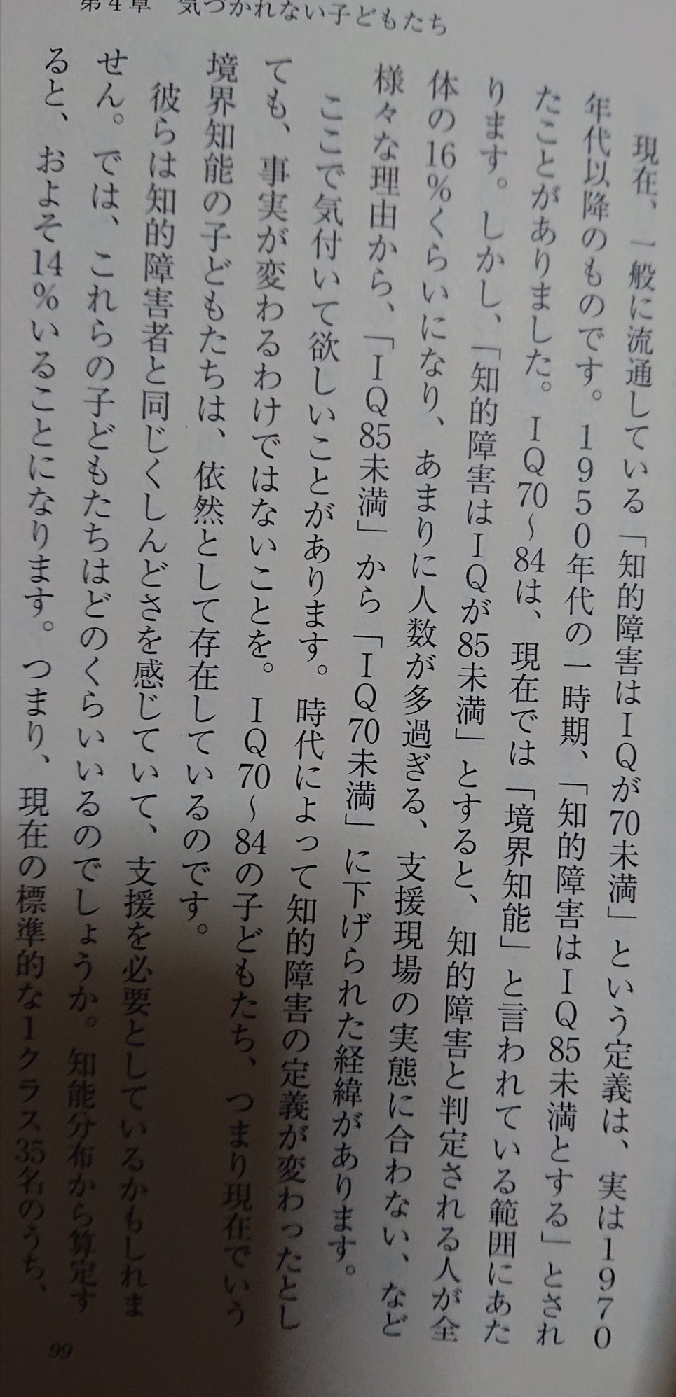 第4章 気づかれない子どもたち
現在、一般に流通している「知的障害はIQが70未満」という定義は、実は1970
年代以降のものです。1950年代の一時期、「知的障害はIQ85未満とする」とされ
たことがありました。IQ70〜84は、現在では「境界知能」と言われている範囲にあた
ります。しかし、「知的障害はIQが85未満」とすると、知的障害と判定される人が全
体の16%くらいになり、あまりに人数が多過ぎる、支援現場の実態に合わない、など
様々な理由から、「IQ85未満」から「IQ70未満」に下げられた経緯があります。
ここで気付いて欲しいことがあります。時代によって知的障害の定義が変わったとし
ても、事実が変わるわけではないことを。IQ70〜84の子どもたち、つまり現在でいう
境界知能の子どもたちは、依然として存在しているのです。
彼らは知的障害者と同じくしんどさを感じていて、支援を必要としているかもしれま
せん。では、これらの子どもたちはどのくらいいるのでしょうか。知能分布から算定す
ると、およそ14%いることになります。つまり、現在の標準的な1クラス35名のうち、
99